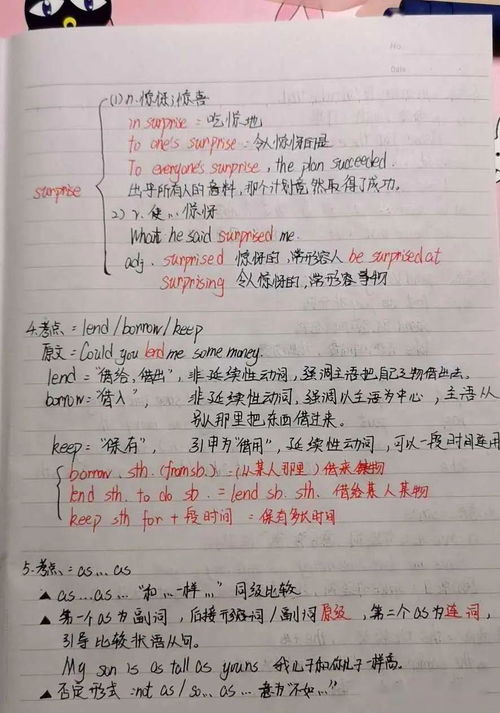 No.
Date
(1) n. 惊讶;惊喜
in surprise : 吃惊地
to one's surprise : 令人惊讶的是
To everyone's surprise, the plan succeeded.
出乎所有人的意料,那个计划竟然取得了成功。
surprise
2) v. 使...惊讶
What he said surprised me.
adj. surprised 惊讶的,常形容人 be surprised at
surprising 令人惊讶的,常形容事物
4.考点:lend/borrow/keep
原文:Could you lend me some money.
lend="借给,借出",非延续性动词,强调主语把自己之物借出去。
borrow:"借入", 非延续性动词,强调以主语为中心,主语从
别人那里把东西借过来。
keep="保有", 引申为"借用",延续性动词,可以一段时间连用
borrow. sth. (from sb.) =(从某人那里)借来某物
lend sth. to do sb. = lend sb. sth. 借给某人某物
keep sth for + 段时间 =保有多长时间
5.考点:as...as
▲ as...as..."和...一样..."同级比较
▲ 第一个as为副词,后接形容词/副词原级,第二个as为连词,
引导比较状语从句。
My son is as tall as yours 我儿子和你儿子一样高。
▲ 否定形式:not as/so...as... 意为"不如..."